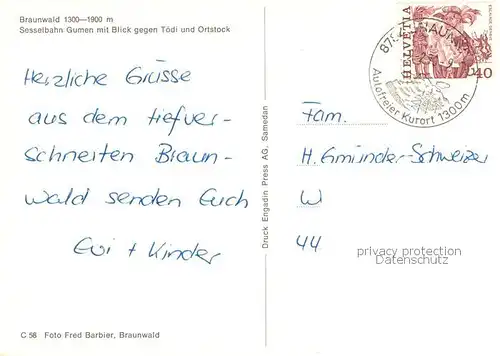 Braunwald 1300—1900 m
Sesselbahn Gumen mit Blick gegen Tödi und Ortstock
HELVETIA
40
Autofreier Kurort 1300m
Herzliche Grüsse
aus dem tiefver-
schneiten Braun-
wald senden Euch
Evi + Kinder
Druck Engadin Press AG, Samedan
Fam.
H. Gmünder-Schweizer
W
44
privacy protection
Datenschutz
C 58 Foto Fred Barbier, Braunwald